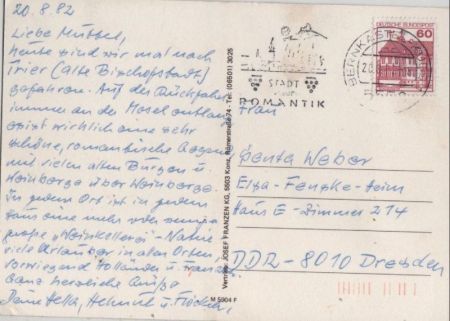 20.8.82
Liebe Muttsch,
heute sind wir mal nach
Trier (alte Bischofsstadt)
gefahren. Auf der Rückfahrt
immer an der Mosel entlang
wirklich eine sehr
schöne, romantische Gegend
mit vielen alten Burgen u.
Weinberge über Weinberge.
In jedem Ort ist in jedem
eine mehr oder weniger
große „Weinkellerei“ – Natürl.
viele Urlauber in allen Orten
vorwiegend Holländer u. Franz.
Ganz herzliche Grüße
Deine Hella, Helmut u.
Vertrieb: JOSEF FRANZEN KG, 5503 Konz, Römerstraße 74 - Tel. (06501) 3025
M 5904 F
STADT
ROMANTIK
BERNKASTEL
DEUTSCHE BUNDESPOST
60
Frau
Weber
Heim
Haus E - Zimmer 214
DDR - 8010 Dresden